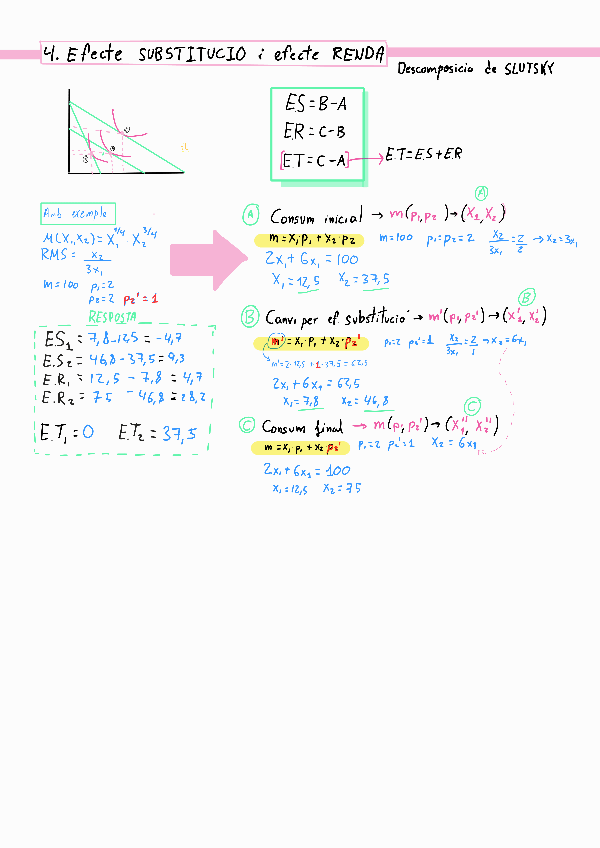 4. Efecte SUBSTITUCIO i efecte RENDA
Descomposicio de SLUTSKY
ES = B - A
ER = C - B
[ET = C - A] → ET = ES + ER
Amb exemple
M(X₁,X₂) = X₁^1/4 X₂^3/4
RMS = x₂/3x₁
m=100 p₁=2
p₂=2 p₂'=1
RESPOSTA
ES₁ = 7,8-12,5 = -4,7
E.S₂ = 46,8-37,5 = 9,3
E.R₁ = 12,5 - 7,8 = 4,7
E.R₂ = 75 - 46,8 = 28,2
E.T₁ = 0 E.T₂ = 37,5
A
A Consum inicial → m(p₁,p₂) → (X₁,X₂)
m = X₁·p₁ + X₂·p₂ m=100 p₁=p₂=2 x₂/3x₁ = 2/2 → x₂=3x₁
2x₁ + 6x₁ = 100
X₁ = 12,5 X₂ = 37,5
B
B Canvi per ef. substitució → m'(p₁,p₂') → (X₁',X₂')
m' = X₁·p₁ + X₂·p₂' p₁=2 p₂'=1 x₂/3x₁ = 2/1 → x₂=6x₁
m'=2·12,5+1·37,5=62,5
2x₁ + 6x₁ = 62,5
x₁ = 7,8 x₂ = 46,8
C
C Consum final → m(p₁,p₂') → (X₁'',X₂'')
m = X₁·p₁ + X₂·p₂' p₁=2 p₂'=1 X₂ = 6x₁
2x₁ + 6x₁ = 100
x₁=12,5 x₂=75